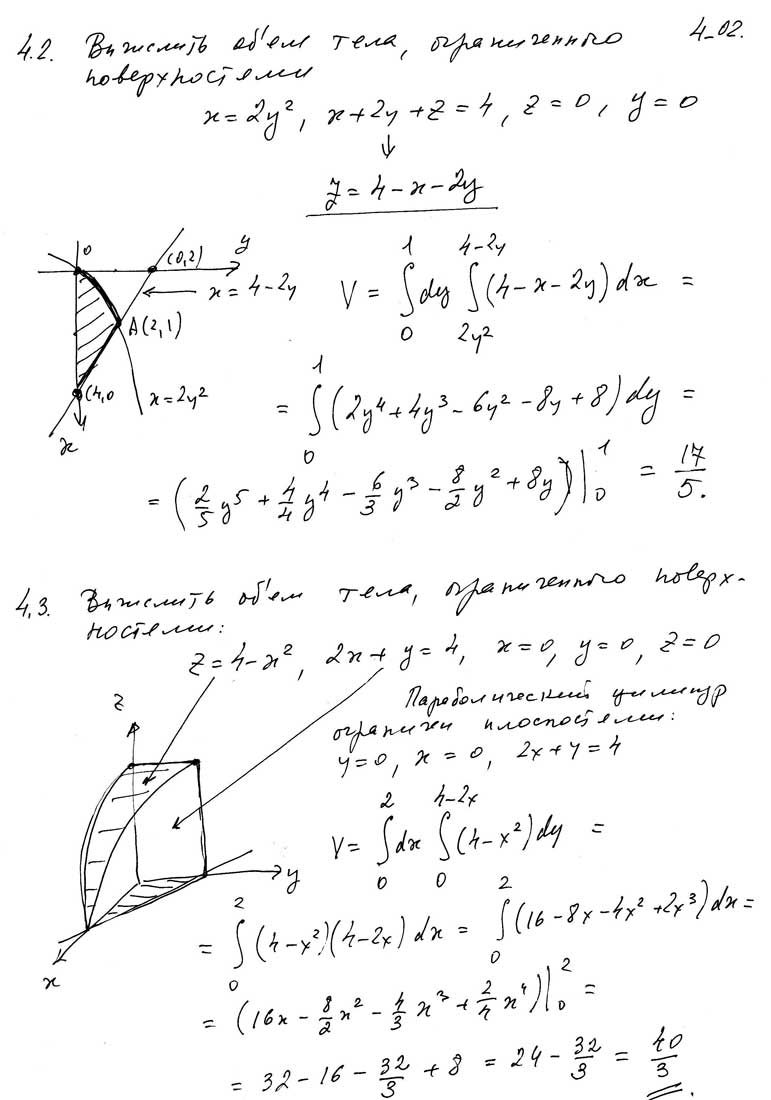 4-02.
4.2. Вычислить об'ем тела, ограниченного
поверхностями
x = 2y², x + 2y + z = 4, z = 0, y = 0
↓
z = 4 - x - 2y
0
y
(0,2)
x = 4 - 2y
A(2,1)
(4,0
x = 2y²
x
V = ∫₀¹ dy ∫_{2y²}^{4-2y} (4 - x - 2y) dx =
= ∫₀¹ (2y⁴ + 4y³ - 6y² - 8y + 8) dy =
= (2/5 y⁵ + 4/4 y⁴ - 6/3 y³ - 8/2 y² + 8y)|₀¹ = 17/5.
4.3. Вычислить об'ем тела, ограниченного поверх-
ностями:
z = 4 - x², 2x + y = 4, x = 0, y = 0, z = 0
Параболический цилиндр
ограничен плоскостями:
y = 0, x = 0, 2x + y = 4
z
y
x
V = ∫₀² dx ∫₀^{4-2x} (4 - x²) dy =
= ∫₀² (4 - x²)(4 - 2x) dx = ∫₀² (16 - 8x - 4x² + 2x³) dx =
= (16x - 8/2 x² - 4/3 x³ + 2/4 x⁴)|₀² =
= 32 - 16 - 32/3 + 8 = 24 - 32/3 = 40/3.